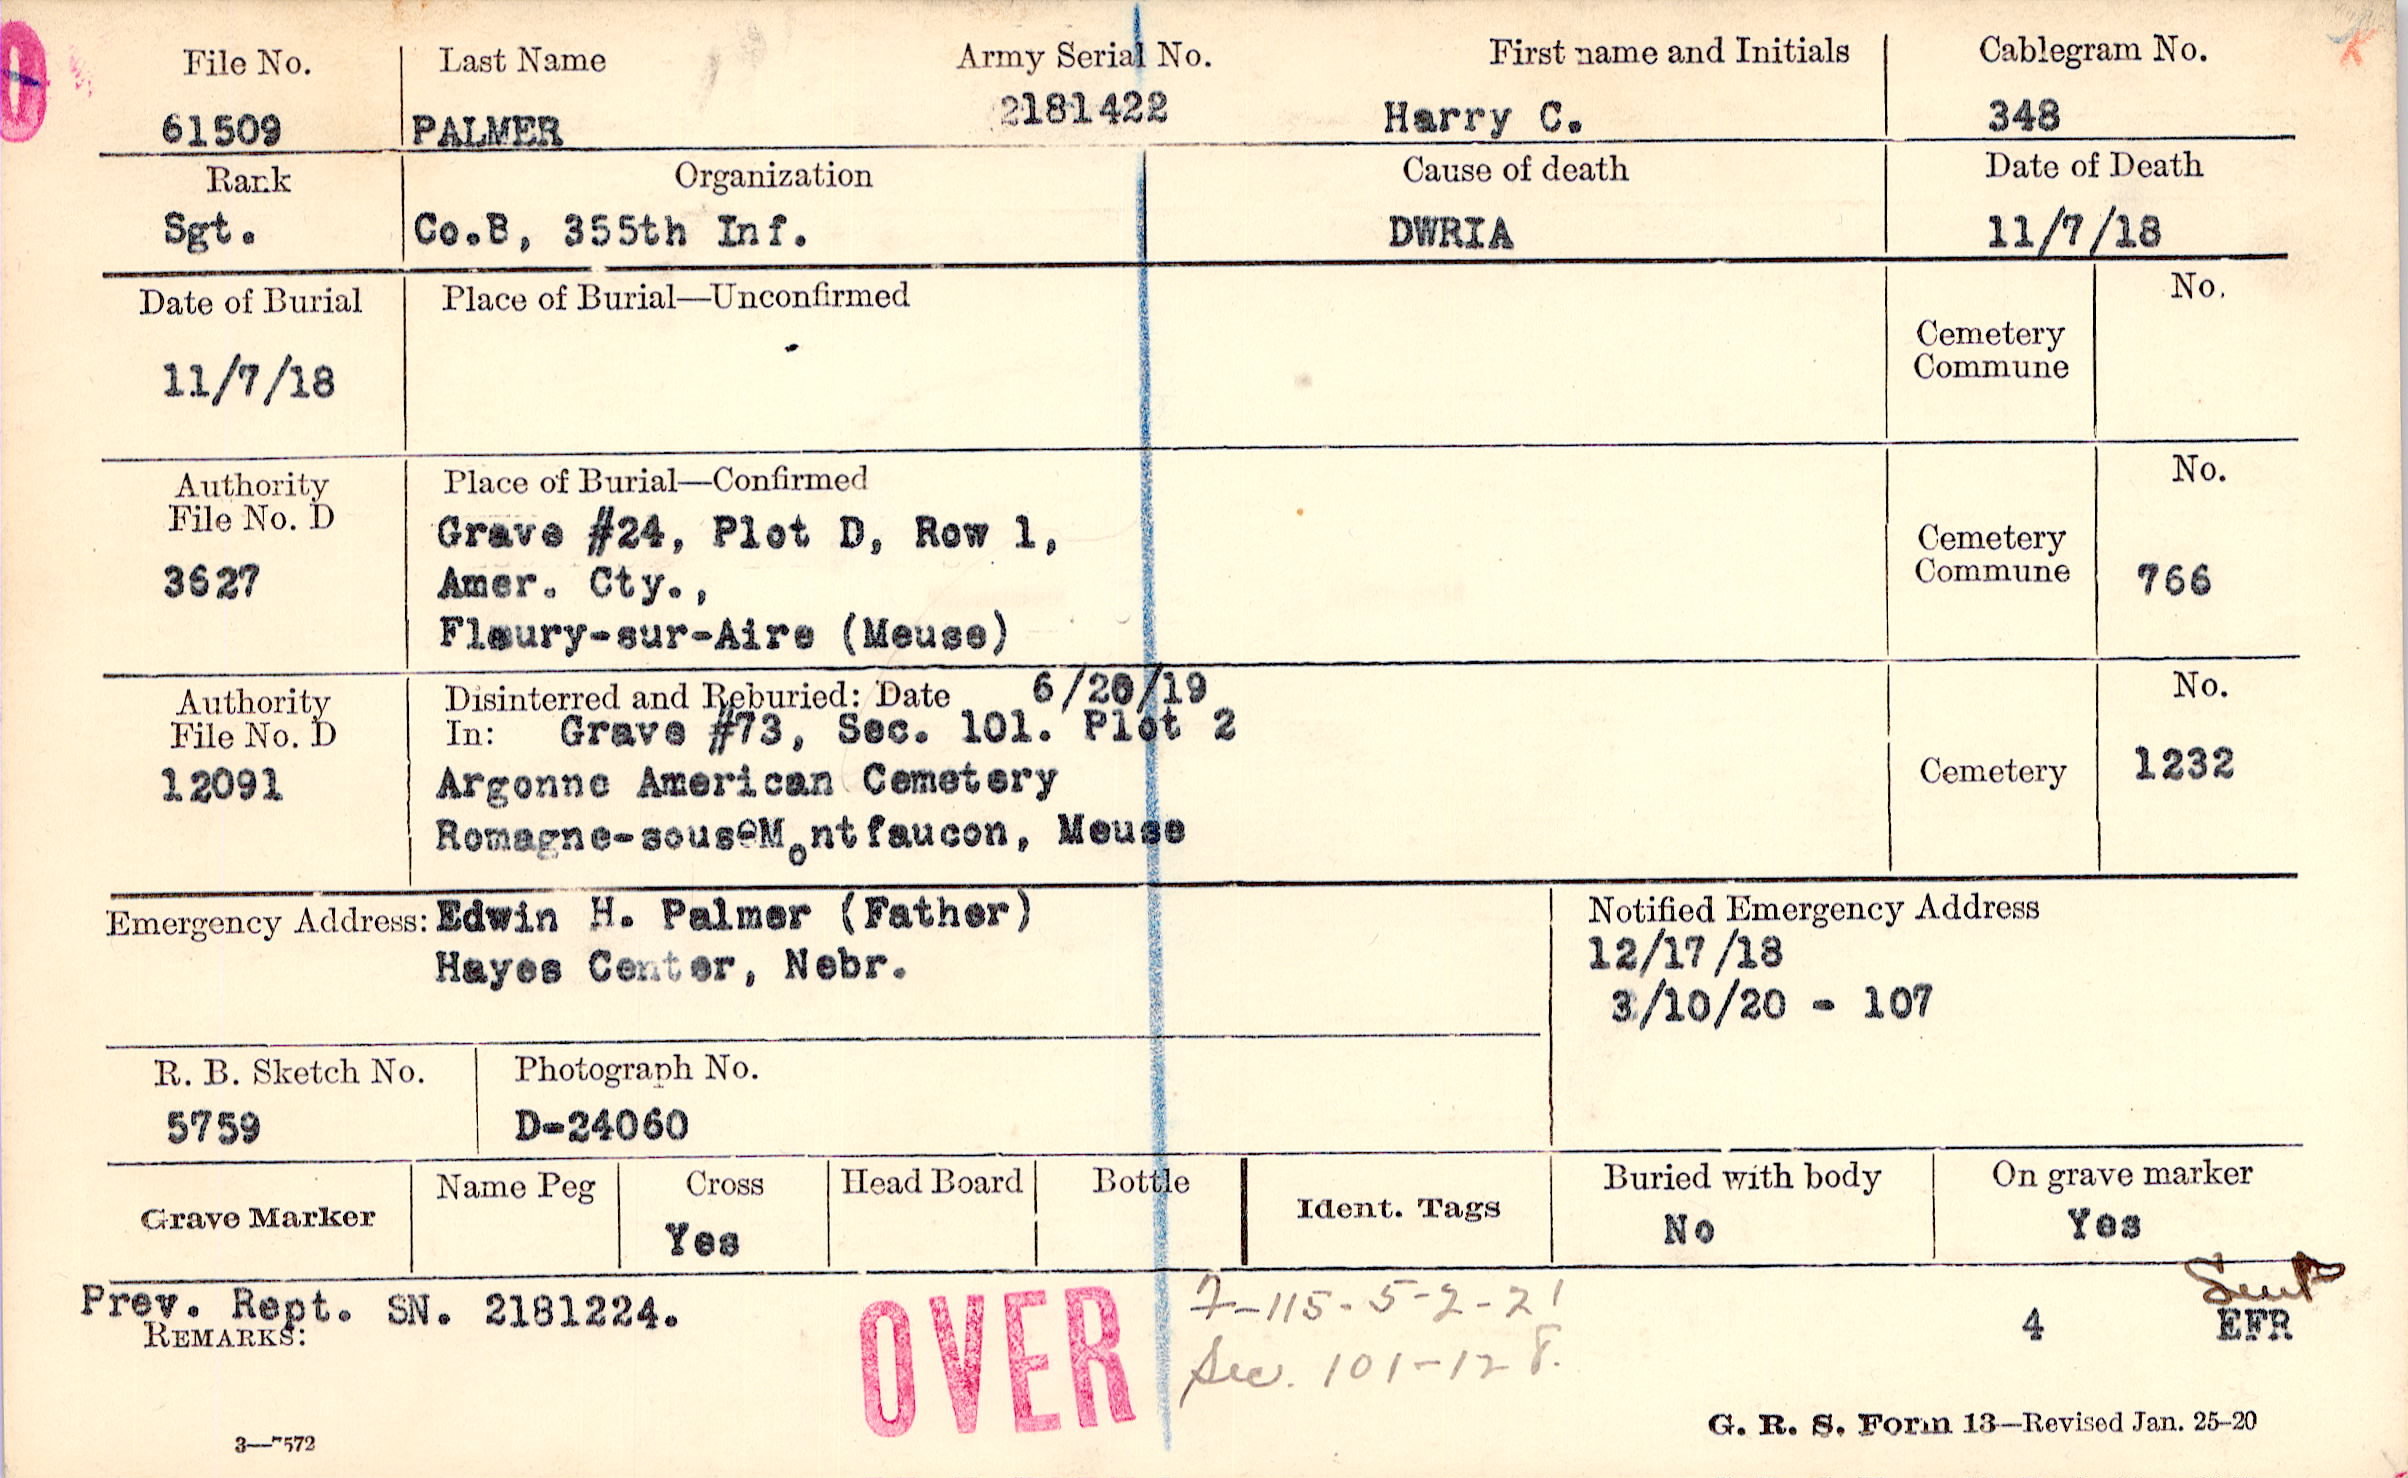 File No.
61509
Last Name
PALMER
Army Serial No.
2181422
First name and Initials
Harry C.
Cablegram No.
348
Rank
Sgt.
Organization
Co.B, 355th Inf.
Cause of death
DWRIA
Date of Death
11/7/18
Date of Burial
11/7/18
Place of Burial—Unconfirmed
Cemetery
Commune
No.
Authority
File No. D
3627
Place of Burial—Confirmed
Grave #24, Plot D, Row 1,
Amer. Cty.,
Fleury-sur-Aire (Meuse)
Cemetery
Commune
No.
766
Authority
File No. D
12091
Disinterred and Reburied: Date 6/20/19
In: Grave #73, Sec. 101. Plot 2
Argonne American Cemetery
Romagne-sous-Montfaucon, Meuse
Cemetery
No.
1232
Emergency Address: Edwin H. Palmer (Father)
Hayes Center, Nebr.
Notified Emergency Address
12/17/18
3/10/20 - 107
R. B. Sketch No.
5759
Photograph No.
D-24060
Grave Marker
Name Peg
Cross
Yes
Head Board
Bottle
Ident. Tags
Buried with body
No
On grave marker
Yes
Prev. Rept. SN. 2181224.
REMARKS:
OVER
7-115-5-2-21
Sec. 101-128.
4
EFR
3—7572
G. R. S. Form 13—Revised Jan. 25-20